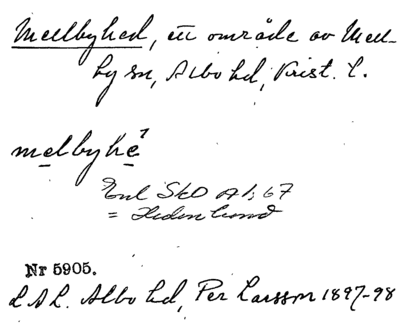 Mellbyhed, ett område av Mell-
by sn, Albo hd, Krist. l.
melbyhe
Enl SkO A1, 67
= Heden
Nr 5905.
LAL. Albo hd, Per Larsson 1897-98